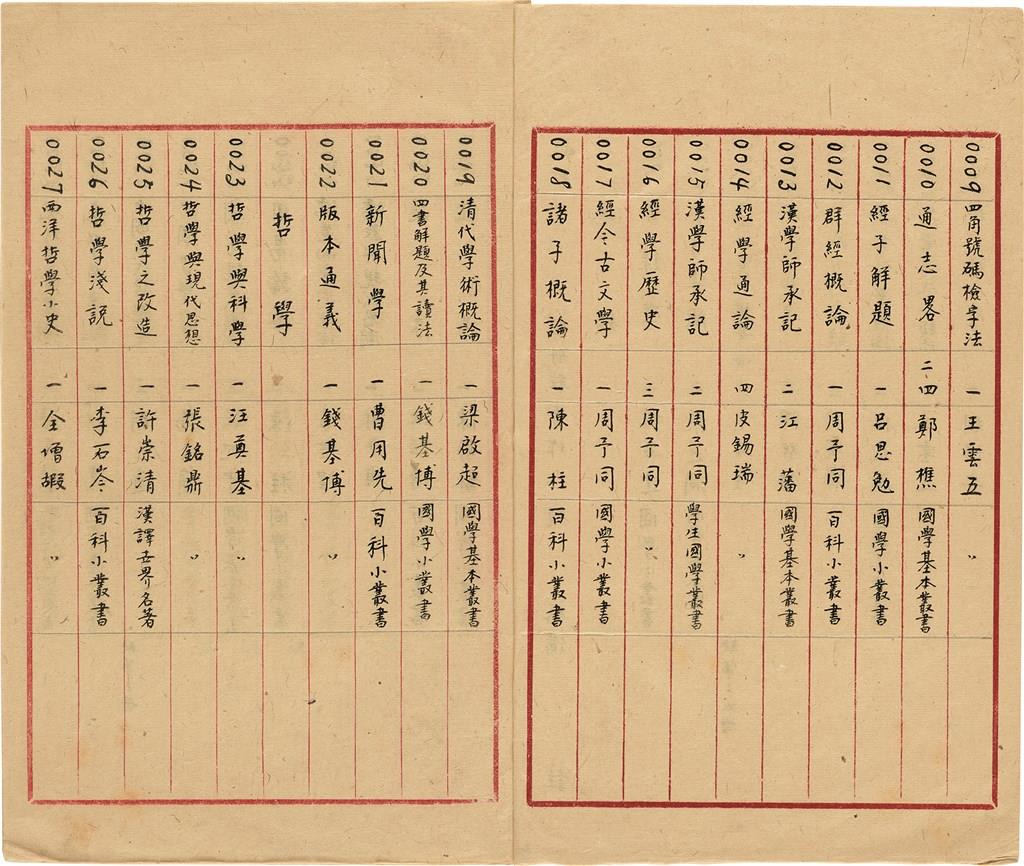 0009 四角號碼檢字法 一 王雲五 〃
0010 通志畧 二四 鄭樵 國學基本叢書
0011 經子解題 一 呂思勉 國學小叢書
0012 群經概論 一 周予同 百科小叢書
0013 漢學師承記 二 江藩 國學基本叢書
0014 經學通論 四 皮錫瑞 〃
0015 漢學師承記 二 周予同 學生國學叢書
0016 經學歷史 三 周予同 〃
0017 經今古文學 一 周予同 國學小叢書
0018 諸子概論 一 陳柱 百科小叢書
0019 清代學術概論 一 梁啟超 國學基本叢書
0020 四書解題及其讀法 一 錢基博 國學小叢書
0021 新聞學 一 曹用先 百科小叢書
0022 版本通義 一 錢基博 〃
哲學
0023 哲學與科學 一 汪奠基 〃
0024 哲學與現代思想 一 張銘鼎 〃
0025 哲學之改造 一 許崇清 漢譯世界名著
0026 哲學淺説 一 李石岑 百科小叢書
0027 西洋哲學小史 一 全增嘏 〃